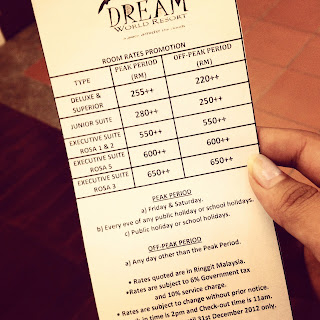 DREAM
WORLD RESORT
ROOM RATES PROMOTION
TYPE PEAK PERIOD (RM) OFF-PEAK PERIOD (RM)
DELUXE & SUPERIOR 255++ 220++
JUNIOR SUITE 280++ 250++
EXECUTIVE SUITE ROSA 1 & 2 550++ 550++
EXECUTIVE SUITE ROSA 5 600++ 600++
EXECUTIVE SUITE ROSA 3 650++ 650++
PEAK PERIOD
a) Friday & Saturday.
b) Every eve of any public holiday or school holidays.
c) Public holiday or school holidays.
OFF-PEAK PERIOD
a) Any day other than the Peak Period.
• Rates quoted are in Ringgit Malaysia.
• Rates are subject to 6% Government tax
and 10% service charge.
• Rates are subject to change without prior notice.
in time is 2pm and Check-out time is 11am.
31st December 2012 only.